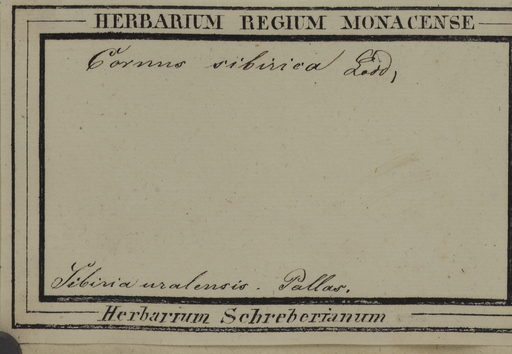 HERBARIUM REGIUM MONACENSE
Cornus sibirica Lodd,
Sibiria uralensis. Pallas.
Herbarium Schreberianum